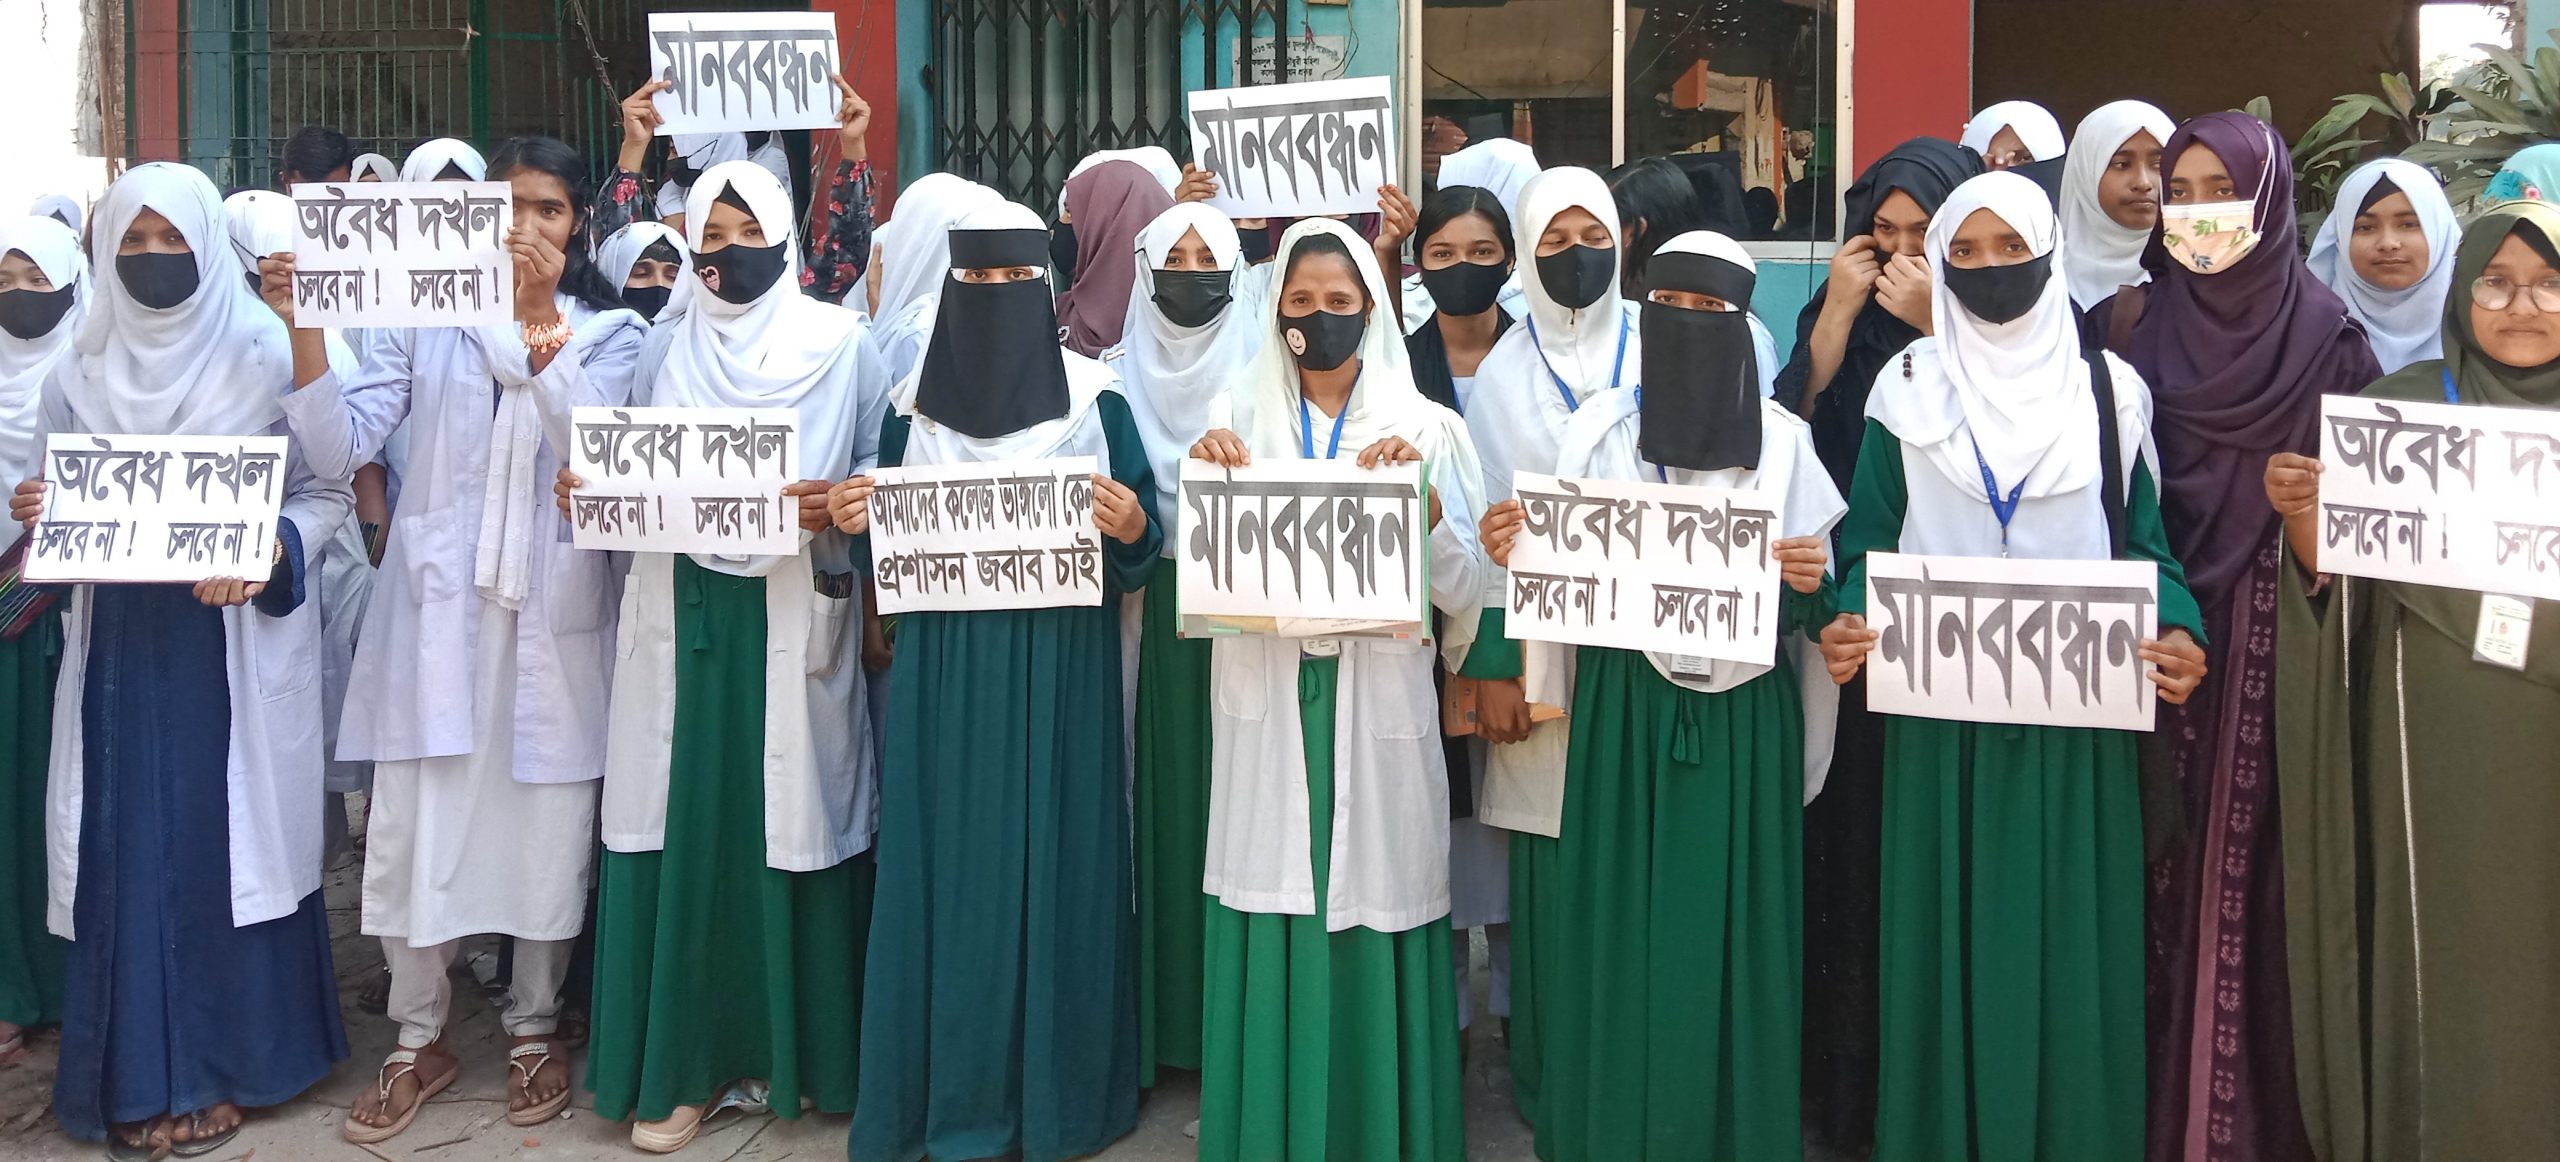 মানববন্ধন
মানববন্ধন
অবৈধ দখল
চলবে না ! চলবে না !
অবৈধ দখল
চলবে না ! চলবে না !
অবৈধ দখল
চলবে না ! চলবে না !
আমাদের কলেজ ভাঙ্গলো কেন
প্রশাসন জবাব চাই
মানববন্ধন
অবৈধ দখল
চলবে না ! চলবে না !
মানববন্ধন
অবৈধ
চলবে না ! চলবে